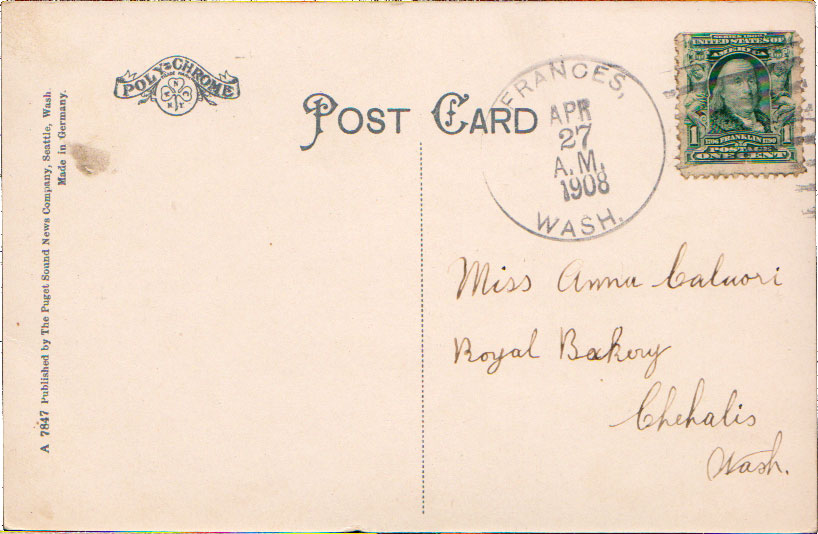 A 7847 Published by The Puget Sound News Company, Seattle, Wash.
Made in Germany.
POLY-CHROME
POST CARD
FRANCES,
APR
27
A.M.
1908
WASH.
SERIES 1902
UNITED STATES OF
AMERICA
1 1706 FRANKLIN 1790 1
POSTAGE
ONE CENT
Miss Anna Caluori
Royal Bakery
Chehalis
Wash.